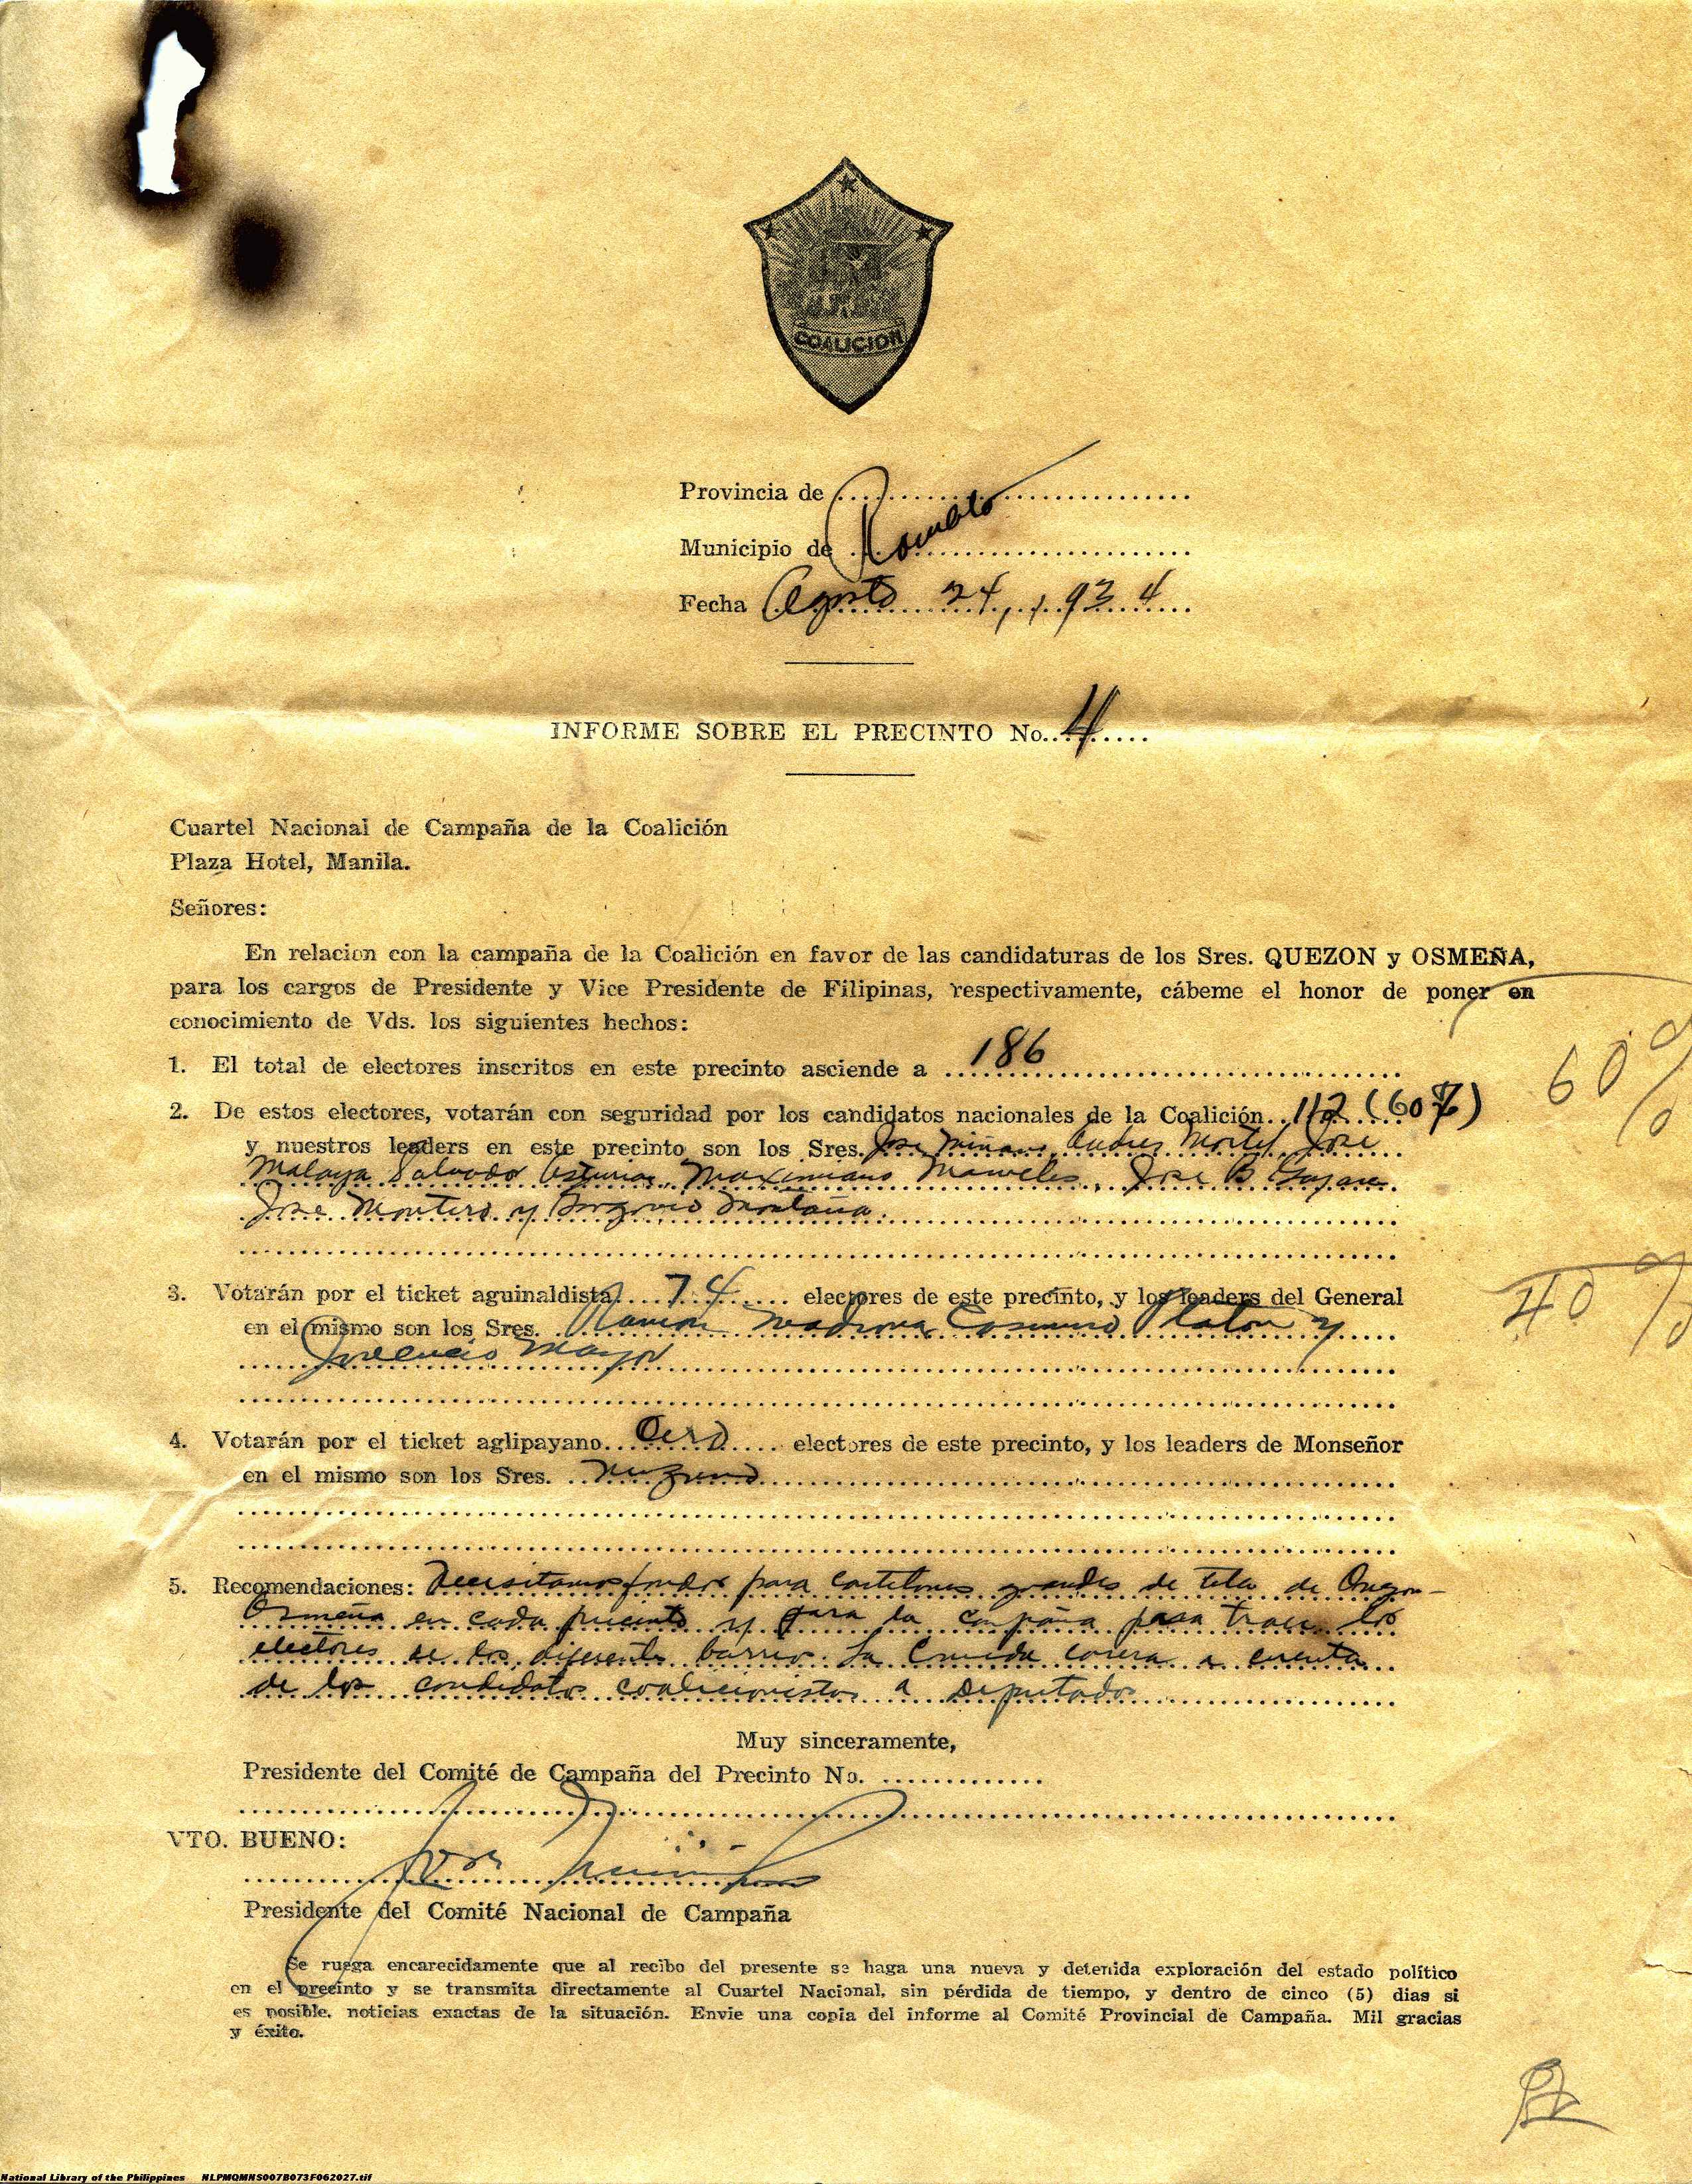 COALICION
Provincia de
Romblon
Municipio de
Fecha Agosto 24, 1934
INFORME SOBRE EL PRECINTO No. 4
Cuartel Nacional de Campaña de la Coalición
Plaza Hotel, Manila.
Señores:
En relacion con la campaña de la Coalición en favor de las candidaturas de los Sres. QUEZON y OSMEÑA,
para los cargos de Presidente y Vice Presidente de Filipinas, respectivamente, cábeme el honor de poner en
conocimiento de Vds. los siguientes hechos:
1. El total de electores inscritos en este precinto asciende a 186
60%
2. De estos electores, votarán con seguridad por los candidatos nacionales de la Coalición 112 (60%)
y nuestros leaders en este precinto son los Sres. Jose Andres Jose
Malaya Salvado Maximiano Jose B.
Jose Montero y Montaña.
3. Votarán por el ticket aguinaldista 74 electores de este precinto, y los leaders del General
40%
en el mismo son los Sres. Ramon Madrona, Platon y
Mayor
4. Votarán por el ticket aglipayano Cero electores de este precinto, y los leaders de Monseñor
en el mismo son los Sres. ninguno
5. Recomendaciones: Necesitamos fondos para cartelones grandes de tela de Quezon-
Osmeña en cada precinto y para la campaña para traer los
electores de los diferentes barrios. La comida correra a cuenta
de los candidatos coalicionistas a Diputados
Muy sinceramente,
Presidente del Comité de Campaña del Precinto No.
VTO. BUENO:
Presidente del Comité Nacional de Campaña
Se ruega encarecidamente que al recibo del presente se haga una nueva y detenida exploración del estado político
en el precinto y se transmita directamente al Cuartel Nacional, sin pérdida de tiempo, y dentro de cinco (5) dias si
es posible, noticias exactas de la situación. Envie una copia del informe al Comité Provincial de Campaña. Mil gracias
y éxito.
National Library of the Philippines NLPMQMNS007B073F062027.tif